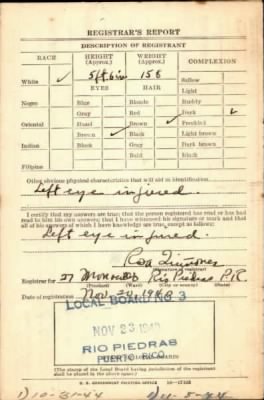 REGISTRAR'S REPORT
DESCRIPTION OF REGISTRANT
RACE HEIGHT (Approx.) WEIGHT (Approx.) COMPLEXION
White ✓ 5ft 6in 158 Sallow
EYES HAIR Light
Negro Blue Blonde Ruddy
Gray Red Dark ✓
Oriental Hazel Brown ✓ Freckled
Brown ✓ Black Light brown
Indian Black Gray Dark brown
Bald Black
Filipino
Other obvious physical characteristics that will aid in identification
Left eye injured.
I certify that my answers are true; that the person registered has read or has had read to him his own answers; that I have witnessed his signature or mark and that all of his answers of which I have knowledge are true, except as follows:
Left eye injured.
Rosa Quinones
(Signature of registrar)
Registrar for 27 Rio Piedras P.R.
(Precinct) (Ward) (City or county) (State)
Date of registration Nov. 20 1940
LOCAL BOARD No. 3
NOV 23 1940
RIO PIEDRAS
PUERTO RICO
(The stamp of the Local Board having jurisdiction of the registrant shall be placed in the above space)
U. S. GOVERNMENT PRINTING OFFICE